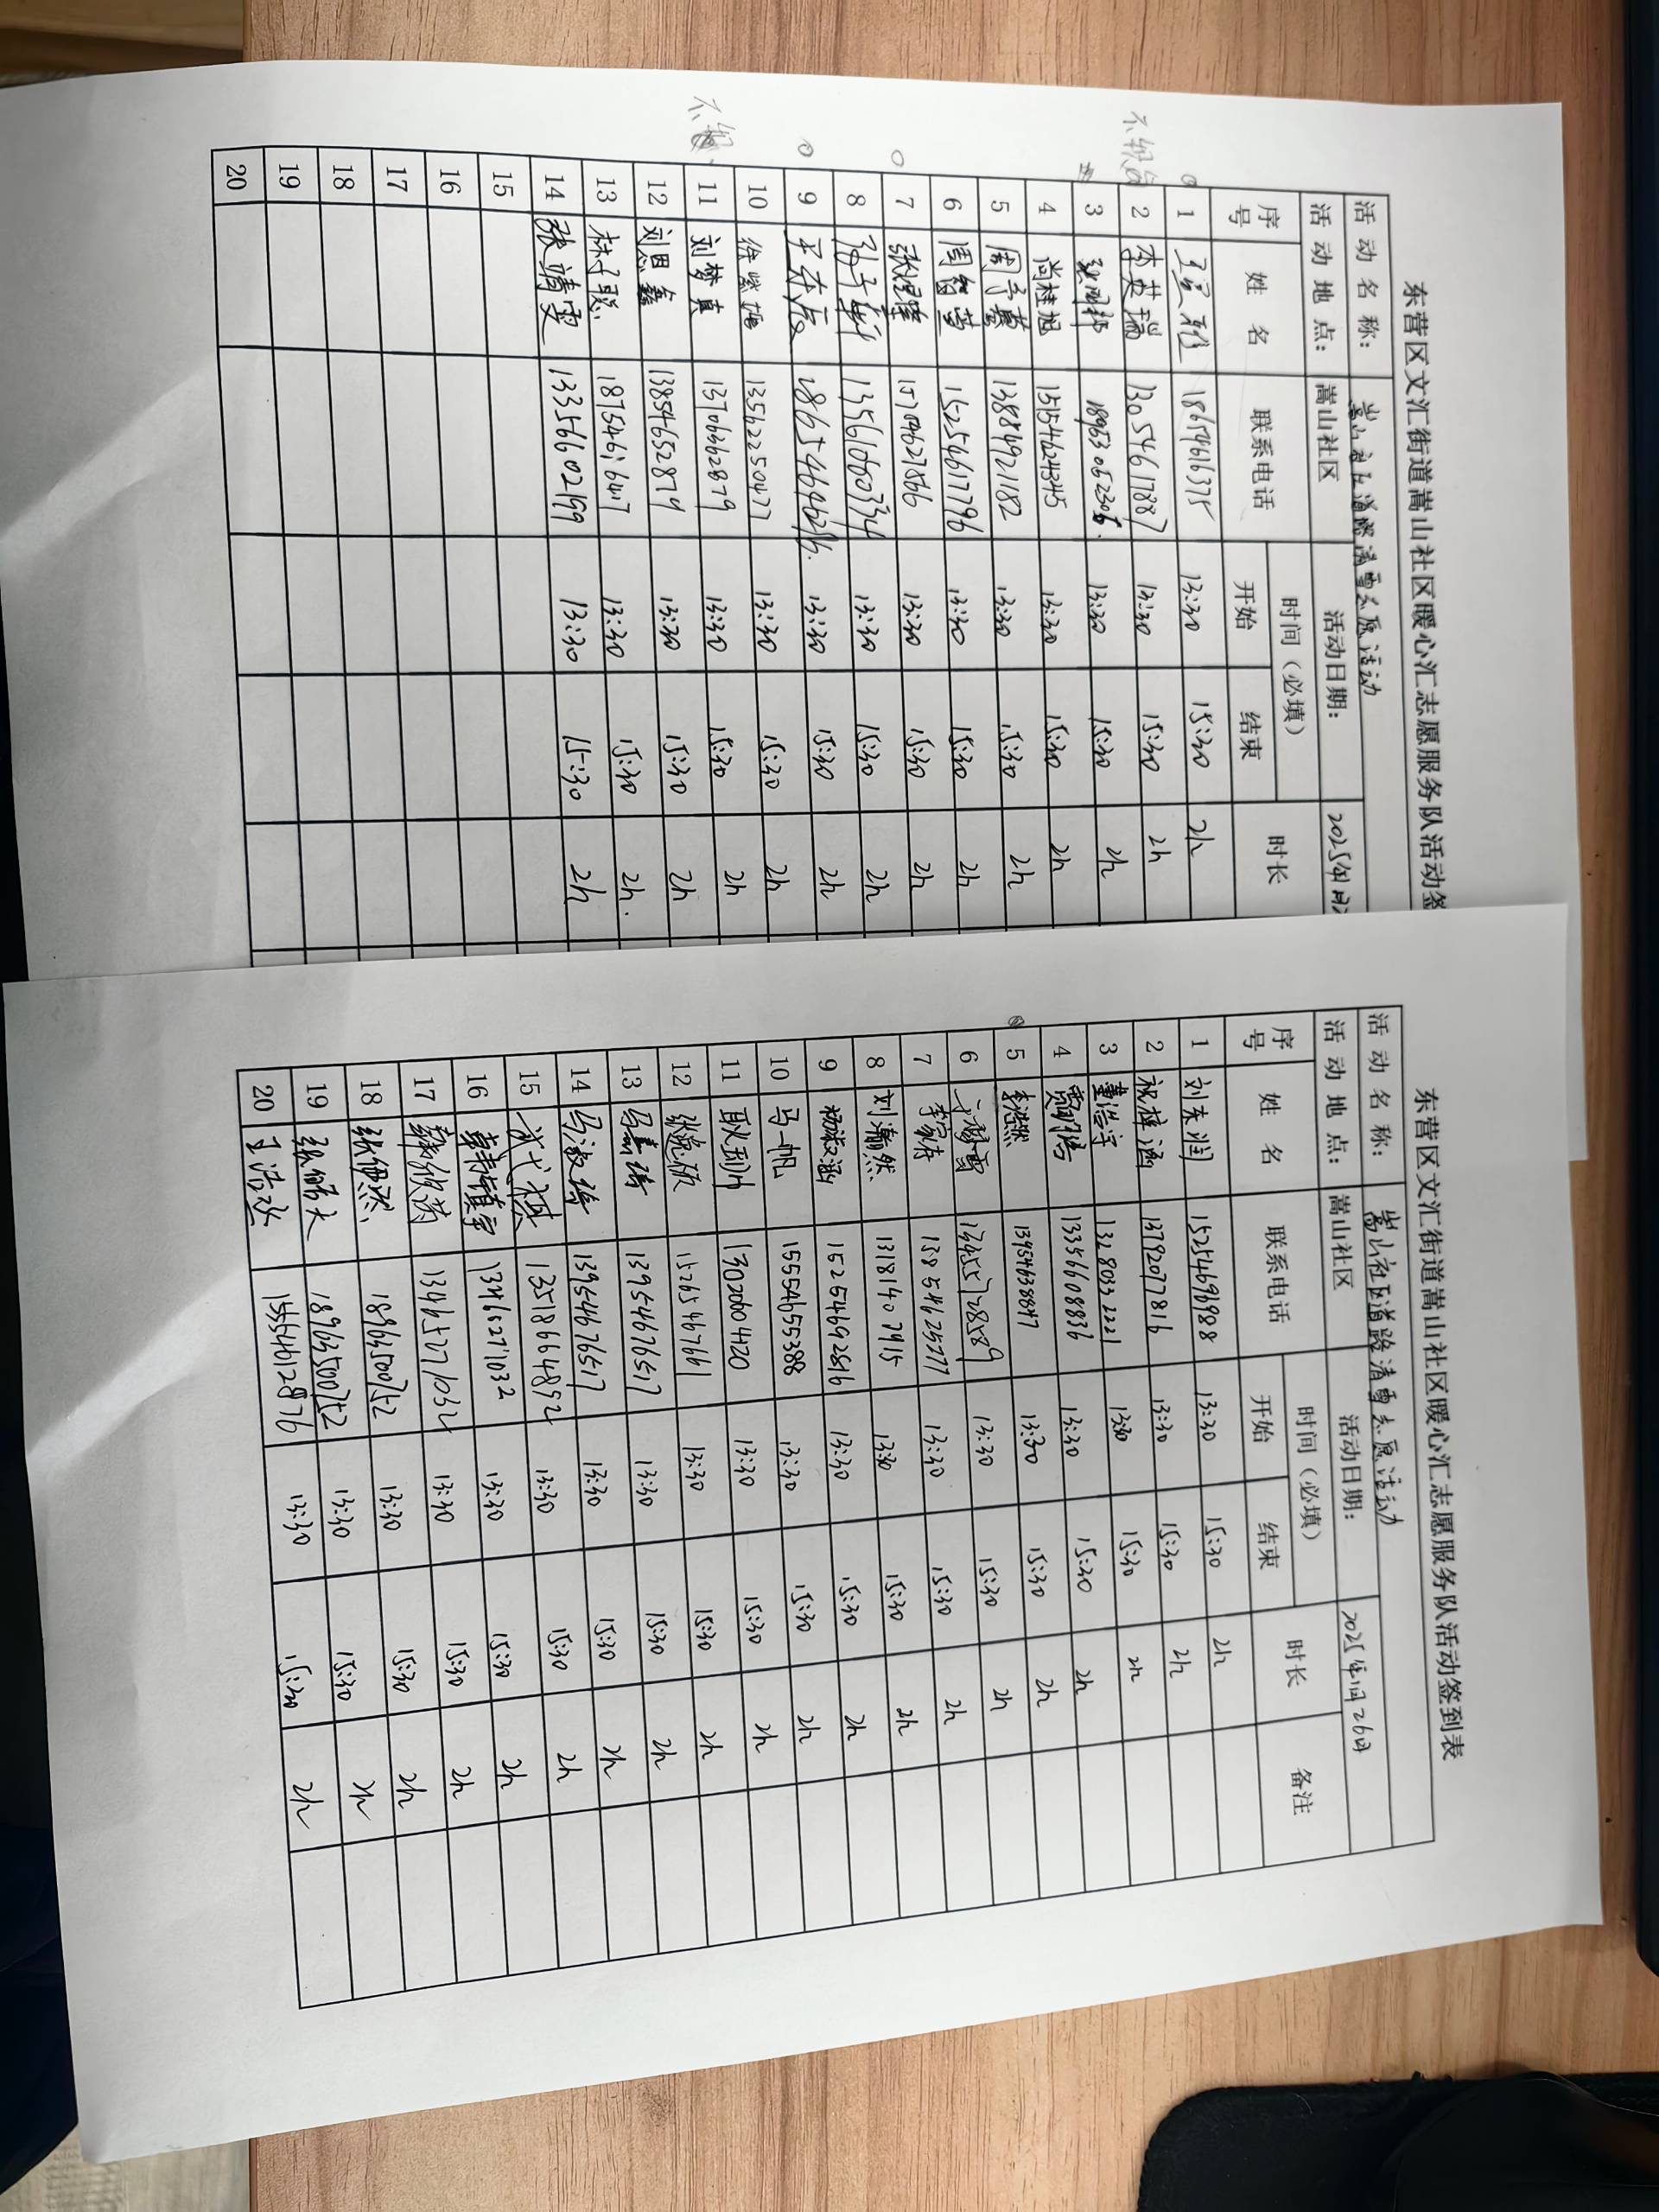 东营区文汇街道嵩山社区暖心汇志愿服务队活动签
活动名称： 嵩山社区道路清雪志愿活动
活动地点： 嵩山社区 活动日期： 2025年1月
序号 姓名 联系电话 时间（必填） 时长
开始 结束
1 18654616375 13:30 15:30 2h
2 李英瑞 13054617887 13:30 15:30 2h
3 13:30 15:30 2h
4 尚桂旭 15154624345 13:30 15:30 2h
5 周子蕙 13884921182 13:30 15:30 2h
6 15254617796 13:30 15:30 2h
7 15704627866 13:30 15:30 2h
8 13561060334 13:30 15:30 2h
9 13:30 15:30 2h
10 13562250477 13:30 15:30 2h
11 刘梦真 13706362879 13:30 15:30 2h
12 刘恩鑫 13854652879 13:30 15:30 2h
13 林子聪 18754616417 13:30 15:30 2h
14 张靖雯 13356602199 13:30 15:30 2h
15
16
17
18
19
20
东营区文汇街道嵩山社区暖心汇志愿服务队活动签到表
活动名称： 嵩山社区道路清雪志愿活动
活动地点： 嵩山社区 活动日期： 2025年1月26日
序号 姓名 联系电话 时间（必填） 时长 备注
开始 结束
1 刘东润 15254698988 13:30 15:30 2h
2 祝梓涵 13792077816 13:30 15:30 2h
3 董浩宇 13280332221 13:30 15:30 2h
4 13356608836 13:30 15:30 2h
5 李浩然 13954638847 13:30 15:30 2h
6 13:30 15:30 2h
7 13854625777 13:30 15:30 2h
8 刘瀚然 13181407915 13:30 15:30 2h
9 15254692816 13:30 15:30 2h
10 马一帆 15554655388 13:30 15:30 2h
11 13020604720 13:30 15:30 2h
12 15265467661 13:30 15:30 2h
13 马嘉琦 13954676517 13:30 15:30 2h
14 马淑琦 13954676517 13:30 15:30 2h
15 武弋祺 13518664892 13:30 15:30 2h
16 13465271032 13:30 15:30 2h
17 13465271032 13:30 15:30 2h
18 18963500752 13:30 15:30 2h
19 18963500752 13:30 15:30 2h
20 王浩冰 15554612876 13:30 15:30 2h